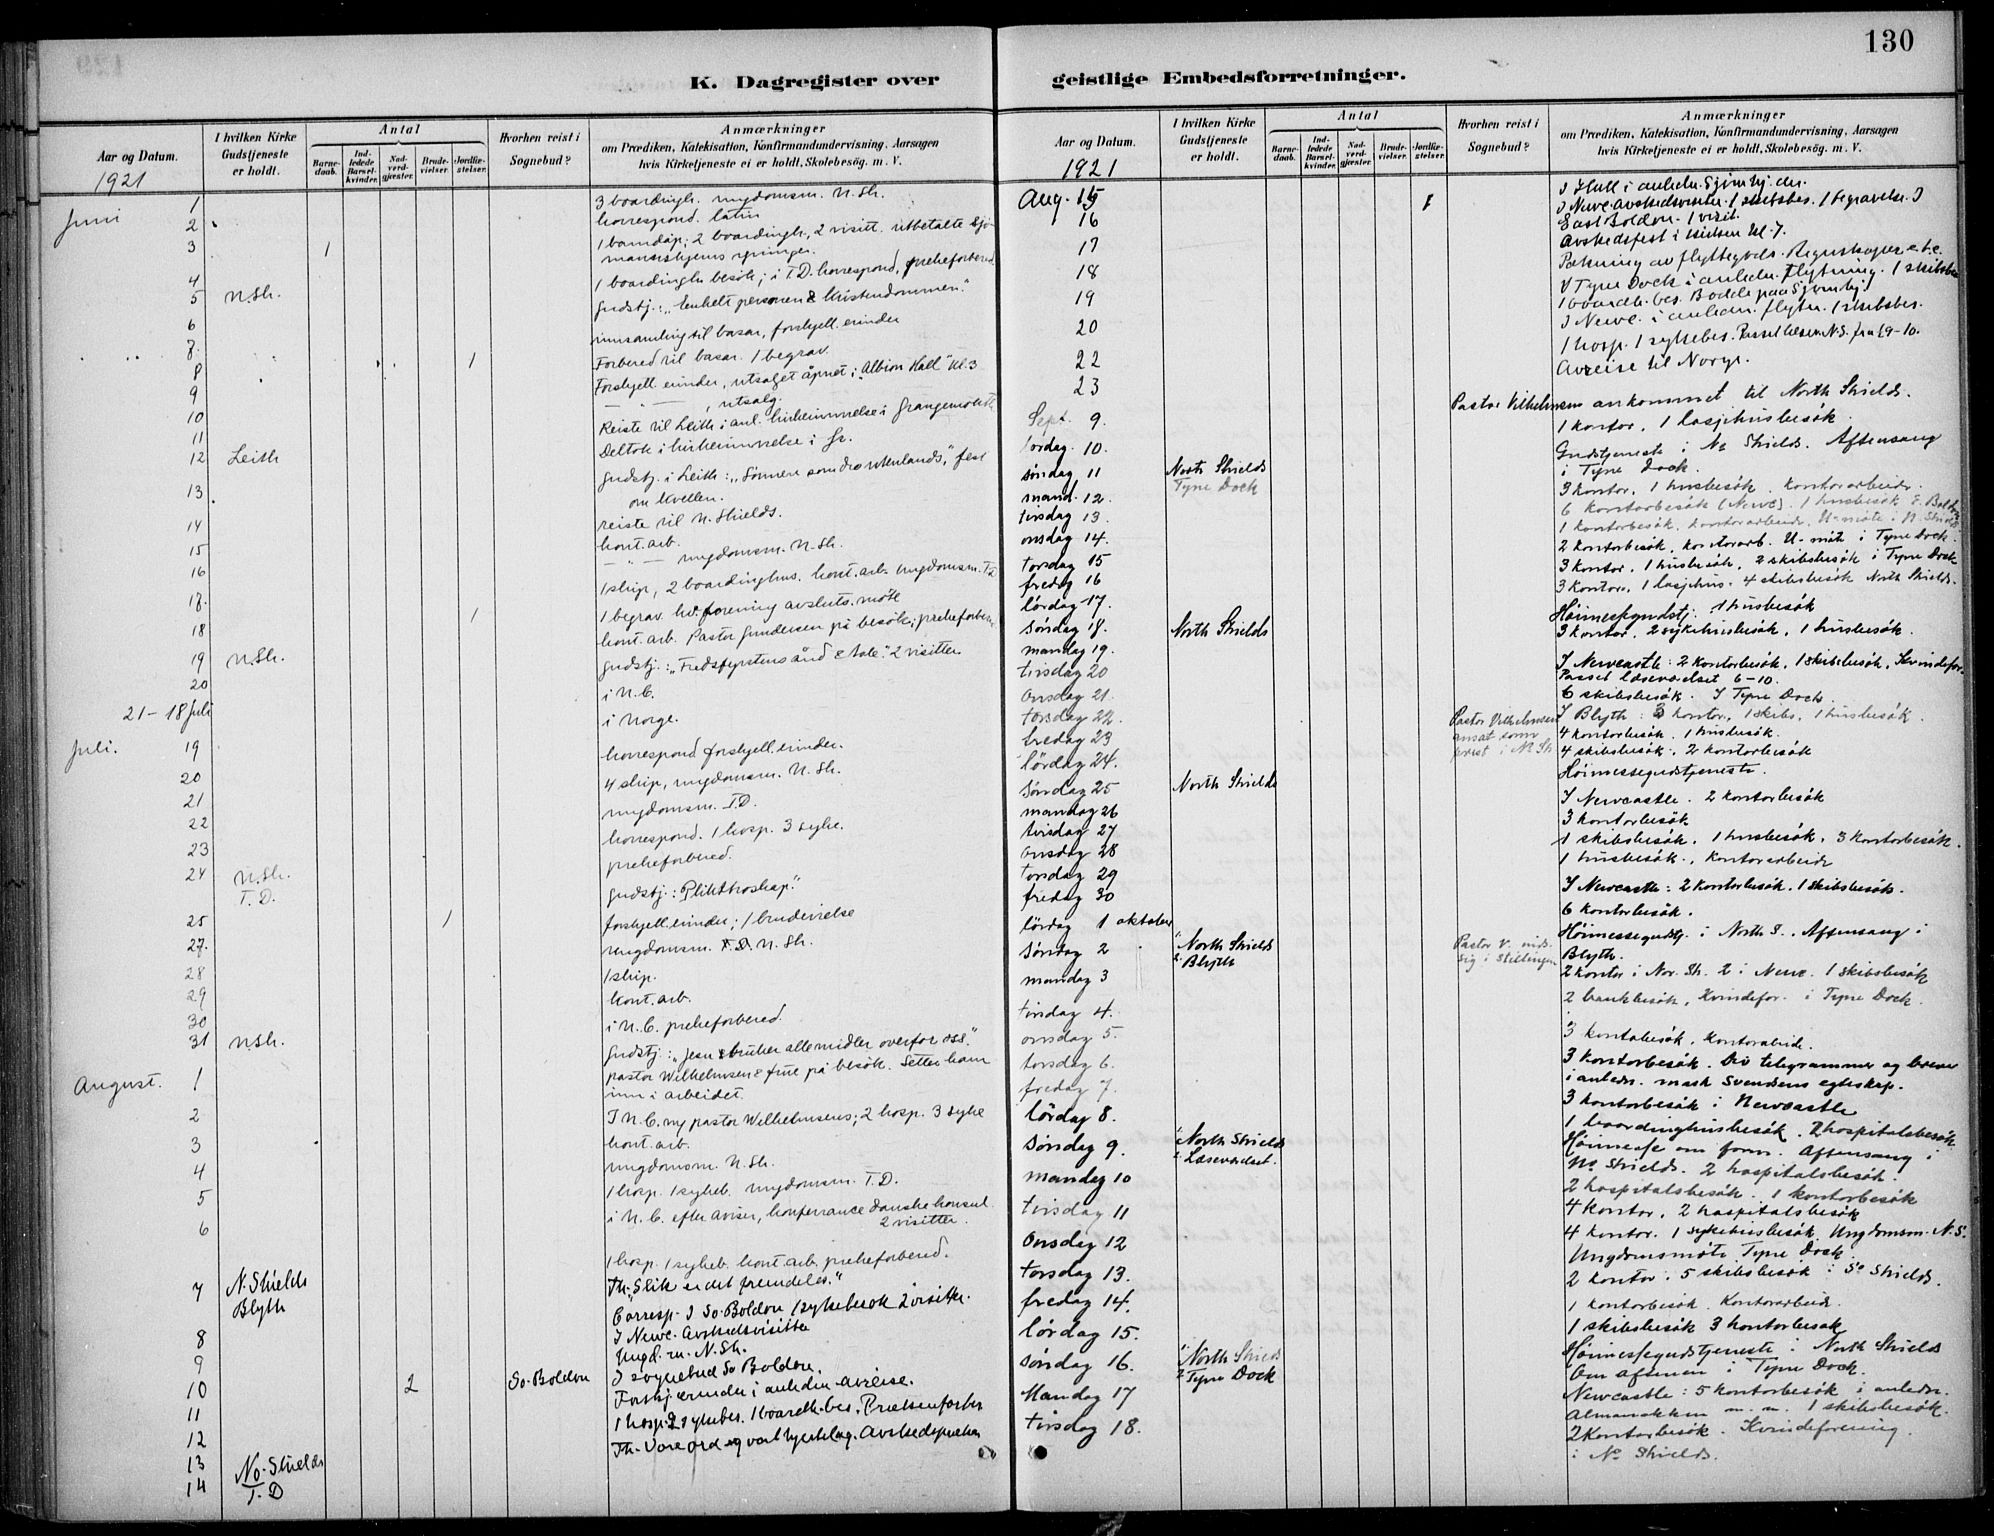 130
K. Dagregister over geistlige Embedsforretninger.
Aar og Datum.
1921
I hvilken Kirke
Gudstjeneste
er holdt.
Antal
Barne-
daab.
Ind-
ledede
Barsel-
kvinder.
Nad-
verd-
gjester.
Brude-
vielser.
Jordfæ-
stelser.
Hvorhen reist i
Sognebud?
Anmærkninger
om Prædiken, Katekisation, Konfirmandundervisning, Aarsagen
hvis Kirketjeneste ei er holdt, Skolebesøg. m. V.
Juni 1 3 boardingh. ungdomsm. N. Sh.
2 korrespond. latin
3 1 1 barndåp; 2 boardingh, 2 visitt. utbetalte sjø-
mannshjems
4 1 boardingh. besøk; i T.D. korrespond, prekeforbered
5 N.Sh. Gudstj.: "Enkelt personen & kristendommen."
6 innsamling til basar, forskjell. erinder
7. 1 Forbered til basar. 1 begrav.
8 Forskjell erinder, utsalget åpnet i "Albion Hall" kl. 3
9 — " — , utsalg.
10 Reiste til Leith i anl. kirkeinnvielse i Grangemouth
11 Deltok i kirkeinnvielse i Gr.
12 Leith Gudstj. i Leith: "Sønnen som dro utenlands," fest
om kvellen.
13 reiste til N. Shields.
14 kont. arb.
15 — " — ungdomsm. N. Sh.
16 1 skip, 2 boardinghus. kont. arb. Ungdomsm. T.D
18. 1 1 begrav. kv. forening avsluts. møte
18 kont. arb. Pastor Gundersen på besøk; prekeforbered
19 N.Sh. Gudstj.: "Fredsfyrstens ånd & tale." 2 visitter
20 i N. C.
21 – 18 Juli i Norge.
Juli. 19 korrespond forskjell erinder.
20 4 skip, ungdomsm. N. Sh.
21 ungdomsm. T.D.
22 korrespond. 1 hosp. 3 syke.
23 prekeforbered.
24 N.Sh.
T.D. Gudstj.: "Plikttroskap."
25 1 forskjell. erinder; 1 brudevielse
27. ungdomsm. T.D. N. Sh.
28 1 skip.
29 kont. arb.
30 i N. C. prekeforbered.
31 N.Sh. Gudstj.: "Jesus bruker alle midler overfor oss."
August. 1 pastor Wilhelmsen & frue på besøk. Setter ham
inn i arbeidet.
2 I N. C. m/ pastor Wilhelmsens; 2 hosp. 3 syke
3 kont. arb.
4 ungdomsm. N. Sh.
5 1 hosp. 1 sykeb. ungdomsm. T. D.
6 i N. C. efter aviser, konferrance danske konsul.
2 visitter.
1 hosp. 1 sykeb. kont. arb. prekeforbered.
7 N. Shields
Blyth Th: "Slik er det fremdeles."
8 Corresp. I So. Boldon 1 sykebesøk 2 visitter.
9 I Newc. Avskedsvisitter
Ungd. m. N. Sh.
10 2 So. Boldon I sognebud So Boldon.
11 Forskj erinder i anledn avreise.
12 1 hosp. 2 sykebes. 1 boardh. bes. Prækenforber
13 No. Shields
14 T. D Th. Vore ord og vort hjertelag. Avskedspreken
Aar og Datum.
1921
I hvilken Kirke
Gudstjeneste
er holdt.
Antal
Barne-
daab.
Ind-
ledede
Barsel-
kvinder.
Nad-
verd-
gjester.
Brude-
vielser.
Jordfæ-
stelser.
Hvorhen reist i
Sognebud?
Anmærkninger
om Prædiken, Katekisation, Konfirmandundervisning, Aarsagen
hvis Kirketjeneste ei er holdt, Skolebesög. m. V.
Aug. 15 1 I Hull i anledn. Sjömhj. der.
16 I Newc. Avskedsvisitter. 1 skibsbes. 1 begravelse. I
East Boldon. 1 visit.
Avskedsfest i kl. 7.
17 Pakning av flyttegods. Regnskaper etc.
18 I Tyne Dock i anledn. flytning. 1 skibsbes
19 1 boardh. bes. Bodde paa Sjömhj.
I Newc. i anledn. flytn. 1 skibsbes.
20 1 hosp. 1 sykebes. Passet læsev. N.S. fra 6-10.
22 Avreise til Norge.
23
Pastor Vilhelmsen ankommet til North Shields.
Sept. 9. 1 kontor, 1 losjihusbesök.
lördag. 10. Gudstjeneste i No Shields. Aftensang
i Tyne Dock.
söndag 11 North Shields
Tyne Dock
mand. 12. 3 kontor, 1 husbesök, kontorarbeide.
tirsdag 13. 6 kontorbesök (Newc). 1 husbesök E. Boldon
onsdag 14. 1 kontorbesök, kontorarbeide, U-möte i N. Shields
torsdag 15 2 kontorbesök, kontorarb. U-möt i Tyne Dock.
fredag 16 3 kontor, 1 husbesök, 2 skibsbesök i Tyne Dock
lördag 17. 3 kontor, 1 losjihus. 4 skibsbesök North Shields.
söndag 18. North Shields Höimessegudstj. 1 husbesök
mandag 19. 3 kontor, 2 sykehusbesök, 1 husbesök.
tirsdag 20 I Newcastle: 2 kontorbesök, 1 skibsbesök, Kvindefor.
Passet læseværelset 6-10.
Onsdag 21. 6 skibsbesök. I Tyne Dock.
torsdag 22. Pastor Vilhelmsen
ansat som
prest i No Sh I Blyth: 3 kontor, 1 skibs, 1 husbesök.
fredag 23 4 kontorbesök. 1 husbesök.
lördag 24. 4 skibsbesök. 2 kontorbesök
söndag 25 North Shields Höimessegudstjeneste.
mandag 26 I Newcastle. 2 kontorbesök
tirsdag 27 3 kontorbesök
onsdag 28 1 skibsbesök, 1 husbesök, 3 kontorbesök.
torsdag 29 1 husbesök, kontorarbeide
fredag 30 I Newcastle: 2 kontorbesök. 1 skibsbesök.
lördag 1 oktober 6 kontorbesök.
söndag 2 1 North Shields
2 Blyth Pastor V. inds.
sig i stillingen Höimessegudstj. i North S., Aftensang i
Blyth.
mandag 3 2 kontor i Nor. Sh. 2 i Newc. 1 skibsbesök
tirsdag 4. 2 bankbesök, Kvindefor. i Tyne Dock.
onsdag 5. 3 kontorbesök, kontorarbeide.
torsdag 6. 3 kontorbesök. Div telegrammer og breve
i anledn. mask Svendsens egteskap.
fredag 7. 3 kontorbesök i Newcastle
lördag 8. 1 boardinghusbesök. 2 hospitalsbesök
söndag 9. 1 North Shields
2. Læseværelset. Höimesse om form. Aftensang i
No Shields. 2 hospitalsbesök.
mandag 10 2 hospitalsbesök. 1 kontorbesök
tirsdag 11 4 kontor, 2 hospitalsbesök
Onsdag 12 4 kontor. 1 sykehusbesök. Ungdomsm. N. S.
torsdag 13. Ungdomsmöte Tyne Dock.
2 kontor. 5 skibsbesök i So Shields.
fredag 14. 1 kontorbesök. Kontorarbeide.
lördag 15. 1 skibsbesök 3 kontorbesök
söndag 16. 1 North Shields
2 Tyne Dock Höimessegudstjeneste i North Shields
Om aftenen i Tyne Dock.
Mandag 17 Newcastle: 5 kontorbesök i anledn.
Almanakken m. m. 1 skibsbesök.
tirsdag 18. 2 Kontorbesök. Kvindeforening.
i No Shields.